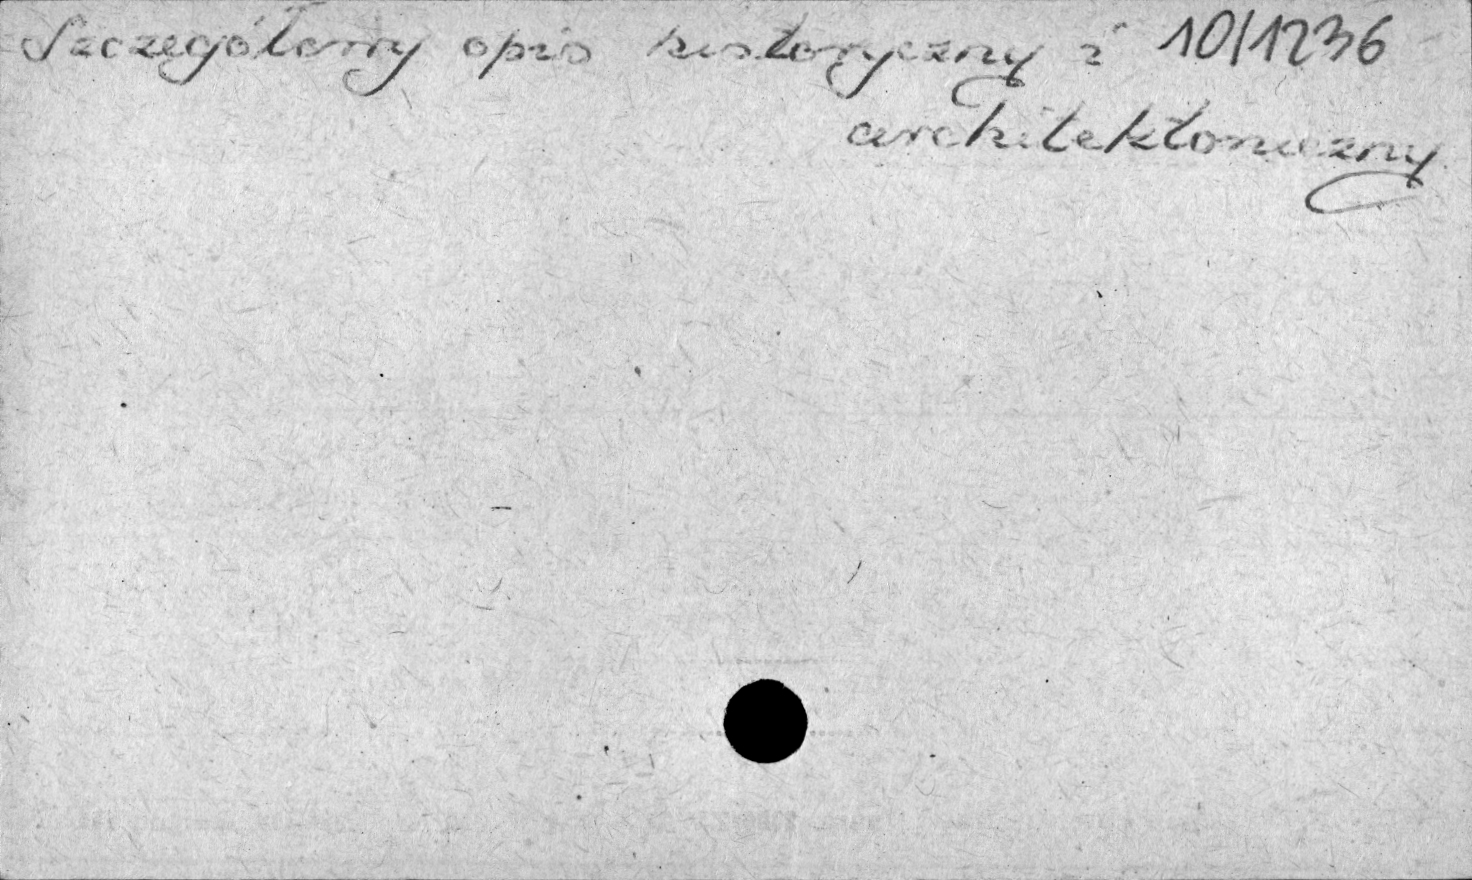 Szczegółowy opis historyczny i 10/1236
architektoniczny